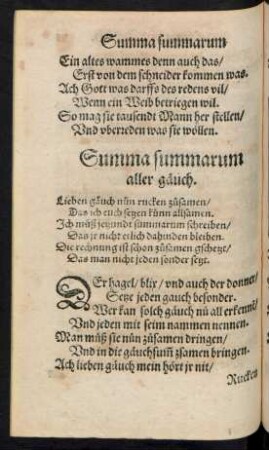 Summa summarum
Ein altes wammes denn auch das/
Erst von dem schneider kommen was.
Ach Gott was darffs des redens vil/
Wenn ein Weib betriegen wil.
So mag sie tausendt Mann her stellen/
Vnd vberreden was sie wöllen.
Summa summarum
aller gäuch.
Lieben gäuch nůn rucken zůsamen/
Das ich euch setzen künn allsamen.
Ich můß yetzundt summarum schreiben/
Das jr nicht etlich dahinden bleiben.
Die rechnung ist schon zůsamen gschetzt/
Das man nicht jeden sonder setzt.
DEr hagel/ blix/ vnd auch der donner/
Setze jeden gauch besonder.
Wer kan solch gäuch nů all erkennē/
Vnd jeden mit seim nammen nennen.
Man můß sie nůn zůsamen dringen/
Vnd in die gäuchsum̄ zsamen bringen.
Ach lieben gäuch mein hört jr nit/
Rucken